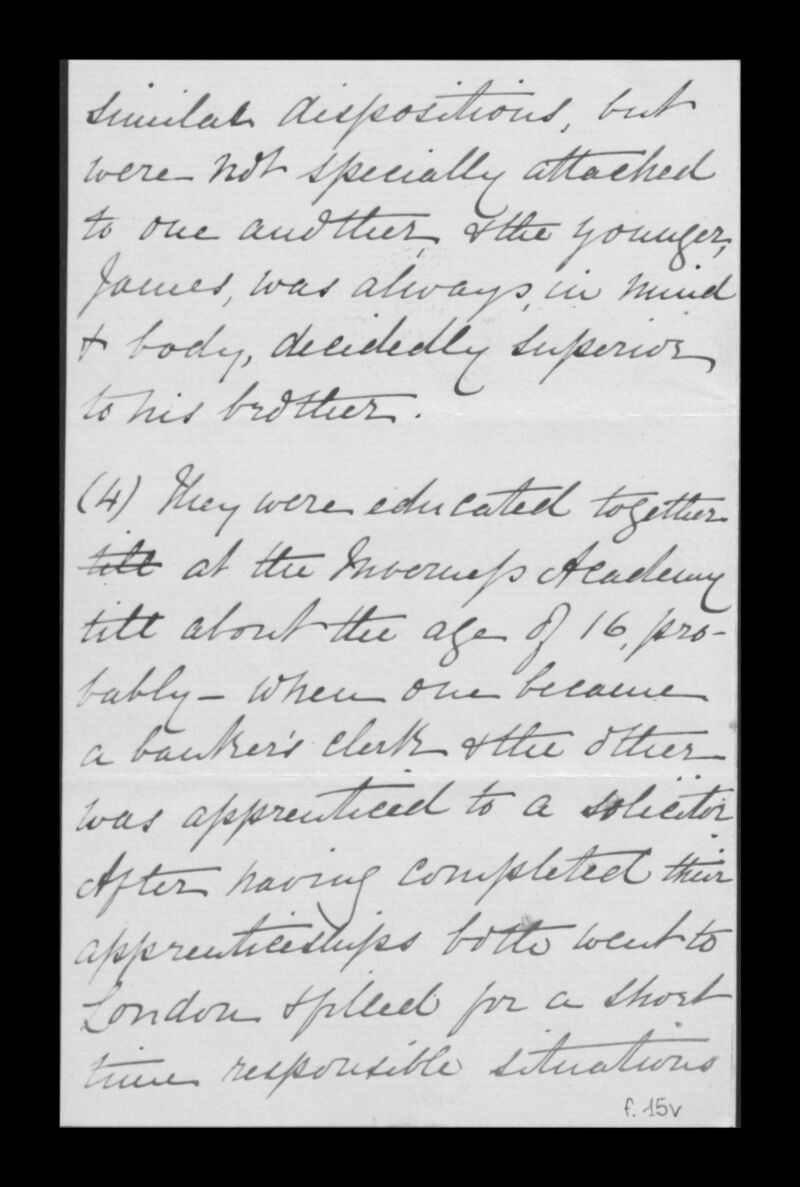 similar dispositions, but
were not specially attached
to one another, & the younger,
James, was always, in mind
& body, decidedly superior
to his brother.
(4) They were educated together
till at the Inverness Academy
till about the age of 16, pro-
bably – when one became
a banker's clerk & the other
was apprenticed to a solicitor
After having completed their
apprenticeships both went to
London & filled for a short
time responsible situations
f. 15v